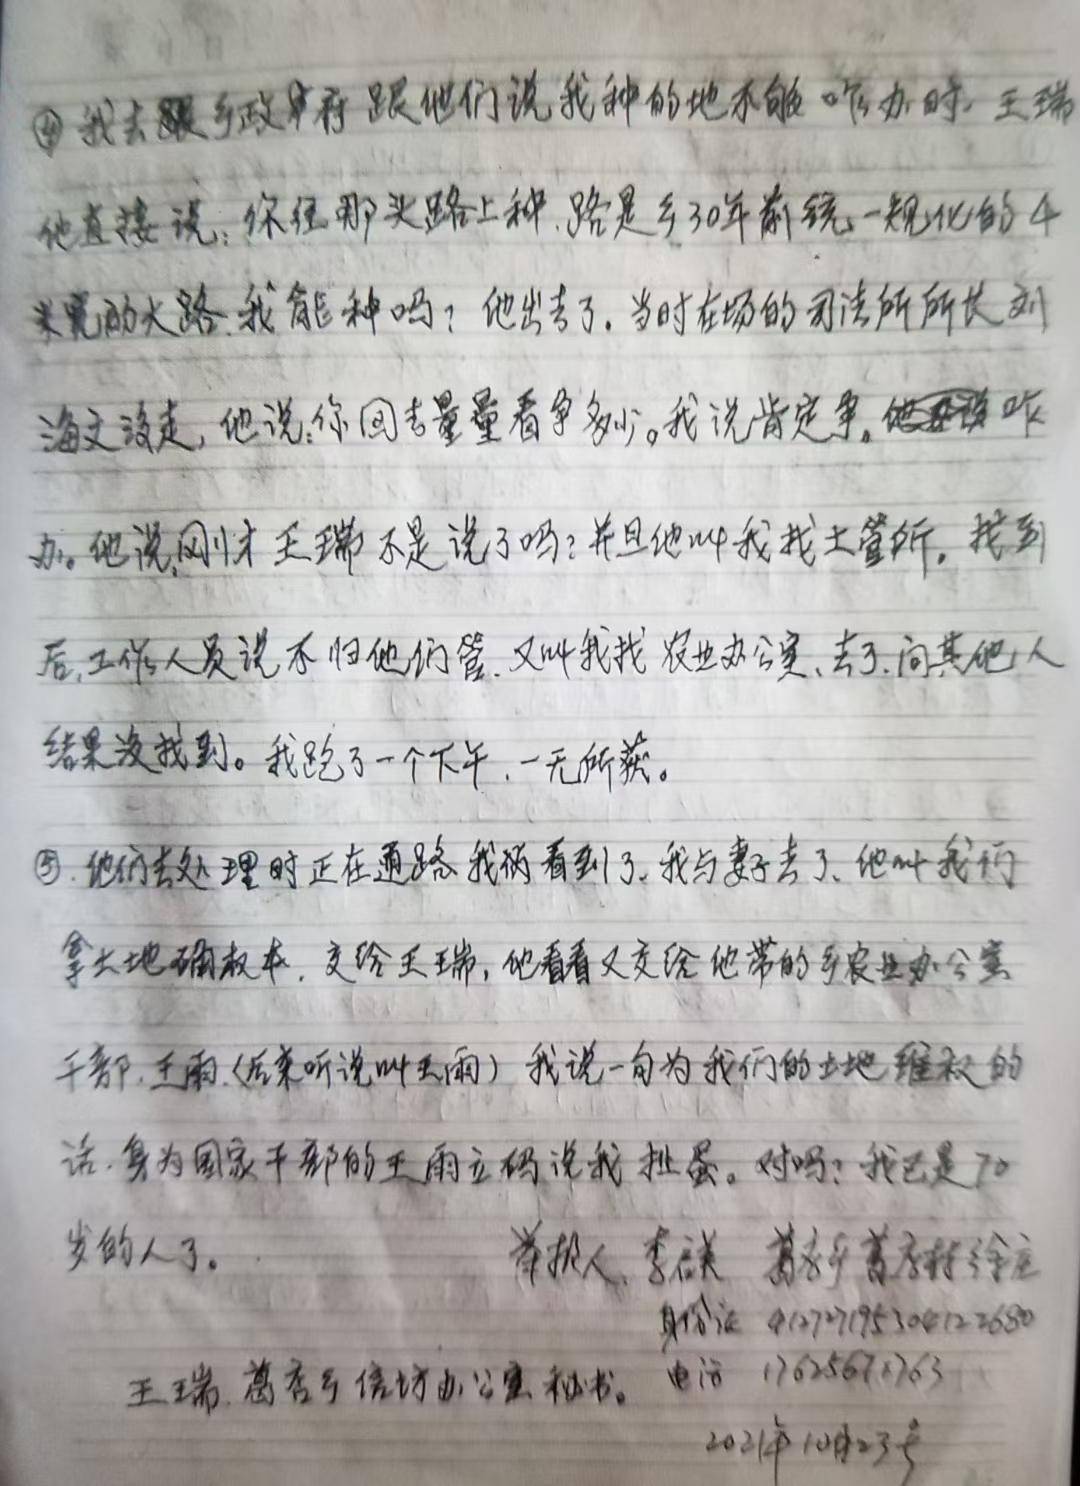 ④我去乡政府跟他们说我种的地不够咋办时,王瑞
他直接说:你往那头路上种.路是乡30年前统一规化的4
米宽的大路.我能种吗?他出去了。当时在场的司法所所长刘
海文没走,他说:你回去量量看争多少。我说肯定争。咋
办。他说,刚才王瑞不是说了吗?并且他叫我找土管所。找到
后,工作人员说不归他们管.又叫我找农业办公室、去了.问其他人
结果没找到。我跑了一个下午.一无所获。
⑤.他们去处理时正在通路我俩看到了.我与妻子去了、他叫我们
拿土地确权本.交给王瑞,他看看又交给他带的乡农业办公室
干部.王雨.(后来听说叫王雨)我说一句为我们的土地维权的
话.身为国家干部的王雨立码说我扯蛋。对吗?我已是70
岁的人了。
举报人、李启美 葛店乡葛店村徐庄
身份证 412727195304122680
电话
王瑞.葛店乡信访办公室秘书。
2021年10月23号